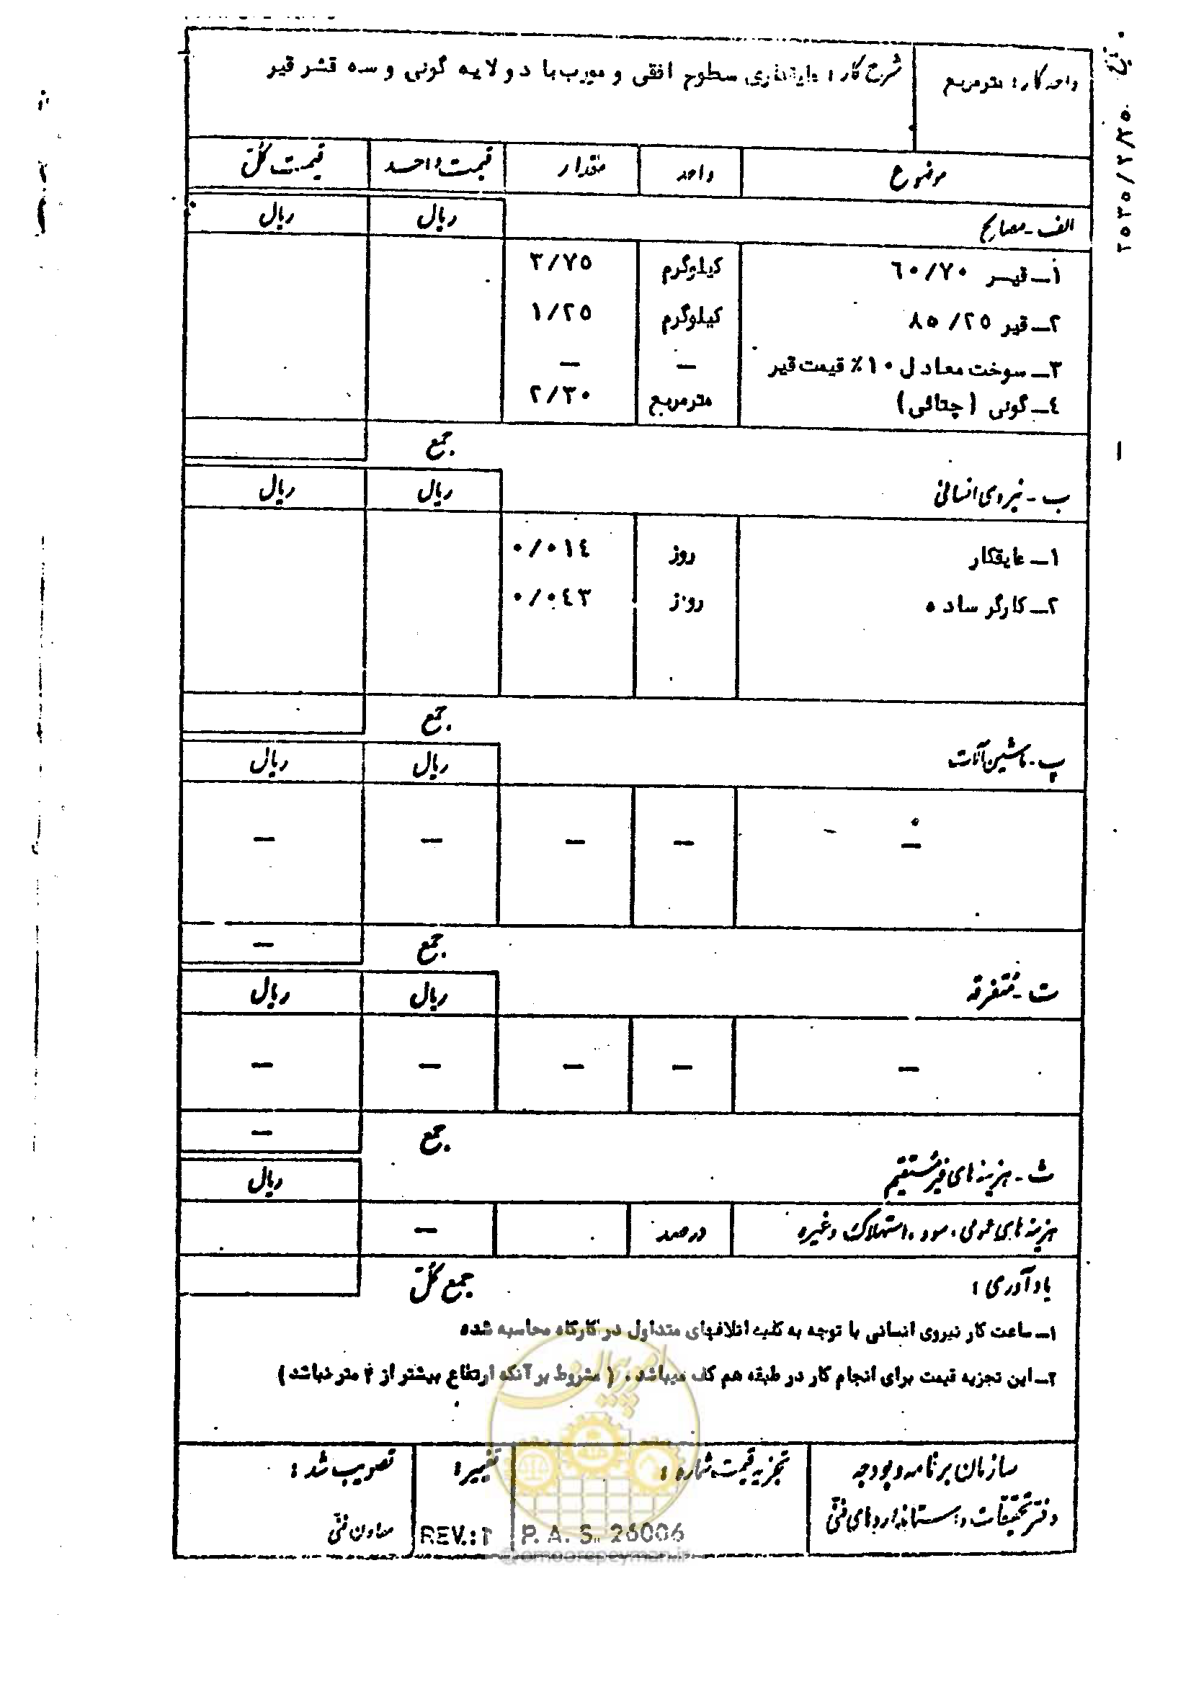 واحد کار : مترمربع
شرح کار : عایقکاری سطوح افقی و مورب با دولایه گونی و سه قشر قیر
موضوع واحد مقدار قیمت واحد قیمت کل
الف - مصالح ریال ریال
۱ـ قیر ٦۰/۷۰ کیلوگرم ۳/۷٥
۲ـ قیر ۸٥/۲٥ کیلوگرم ۱/۲٥
۳ـ سوخت معادل ۱۰٪ قیمت قیر ـ ـ
٤ـ گونی (چتائی) مترمربع ۲/۳۰
جمع
ب - نیروی انسانی ریال ریال
۱ـ عایقکار روز ۰/۰۱٤
۲ـ کارگر ساده روز ۰/۰٤۳
جمع
پ - ماشین آلات ریال ریال
ـ ـ ـ ـ ـ
جمع ـ
ت - متفرقه ریال ریال
ـ ـ ـ ـ ـ
جمع ـ
ث - هزینه های غیرمستقیم ریال
هزینه های عمومی ، سود ، استهلاک وغیره درصد ـ
جمع کل
یادآوری :
۱ـ ساعت کار نیروی انسانی با توجه به کلیه اتلافهای متداول در کارگاه محاسبه شده
۲ـ این تجزیه قیمت برای انجام کار در طبقه هم کف میباشد . ( مشروط بر آنکه ارتفاع بیشتر از ۴ متر نباشد )
سازمان برنامه و بودجه
دفتر تحقیقات و استانداردهای فنی
تجزیه قیمت شماره :
P. A. S. 26006
تغییر :
REV.: 1
تصویب شد :
معاون فنی
امور پیمان
@omoorepeyman.ir